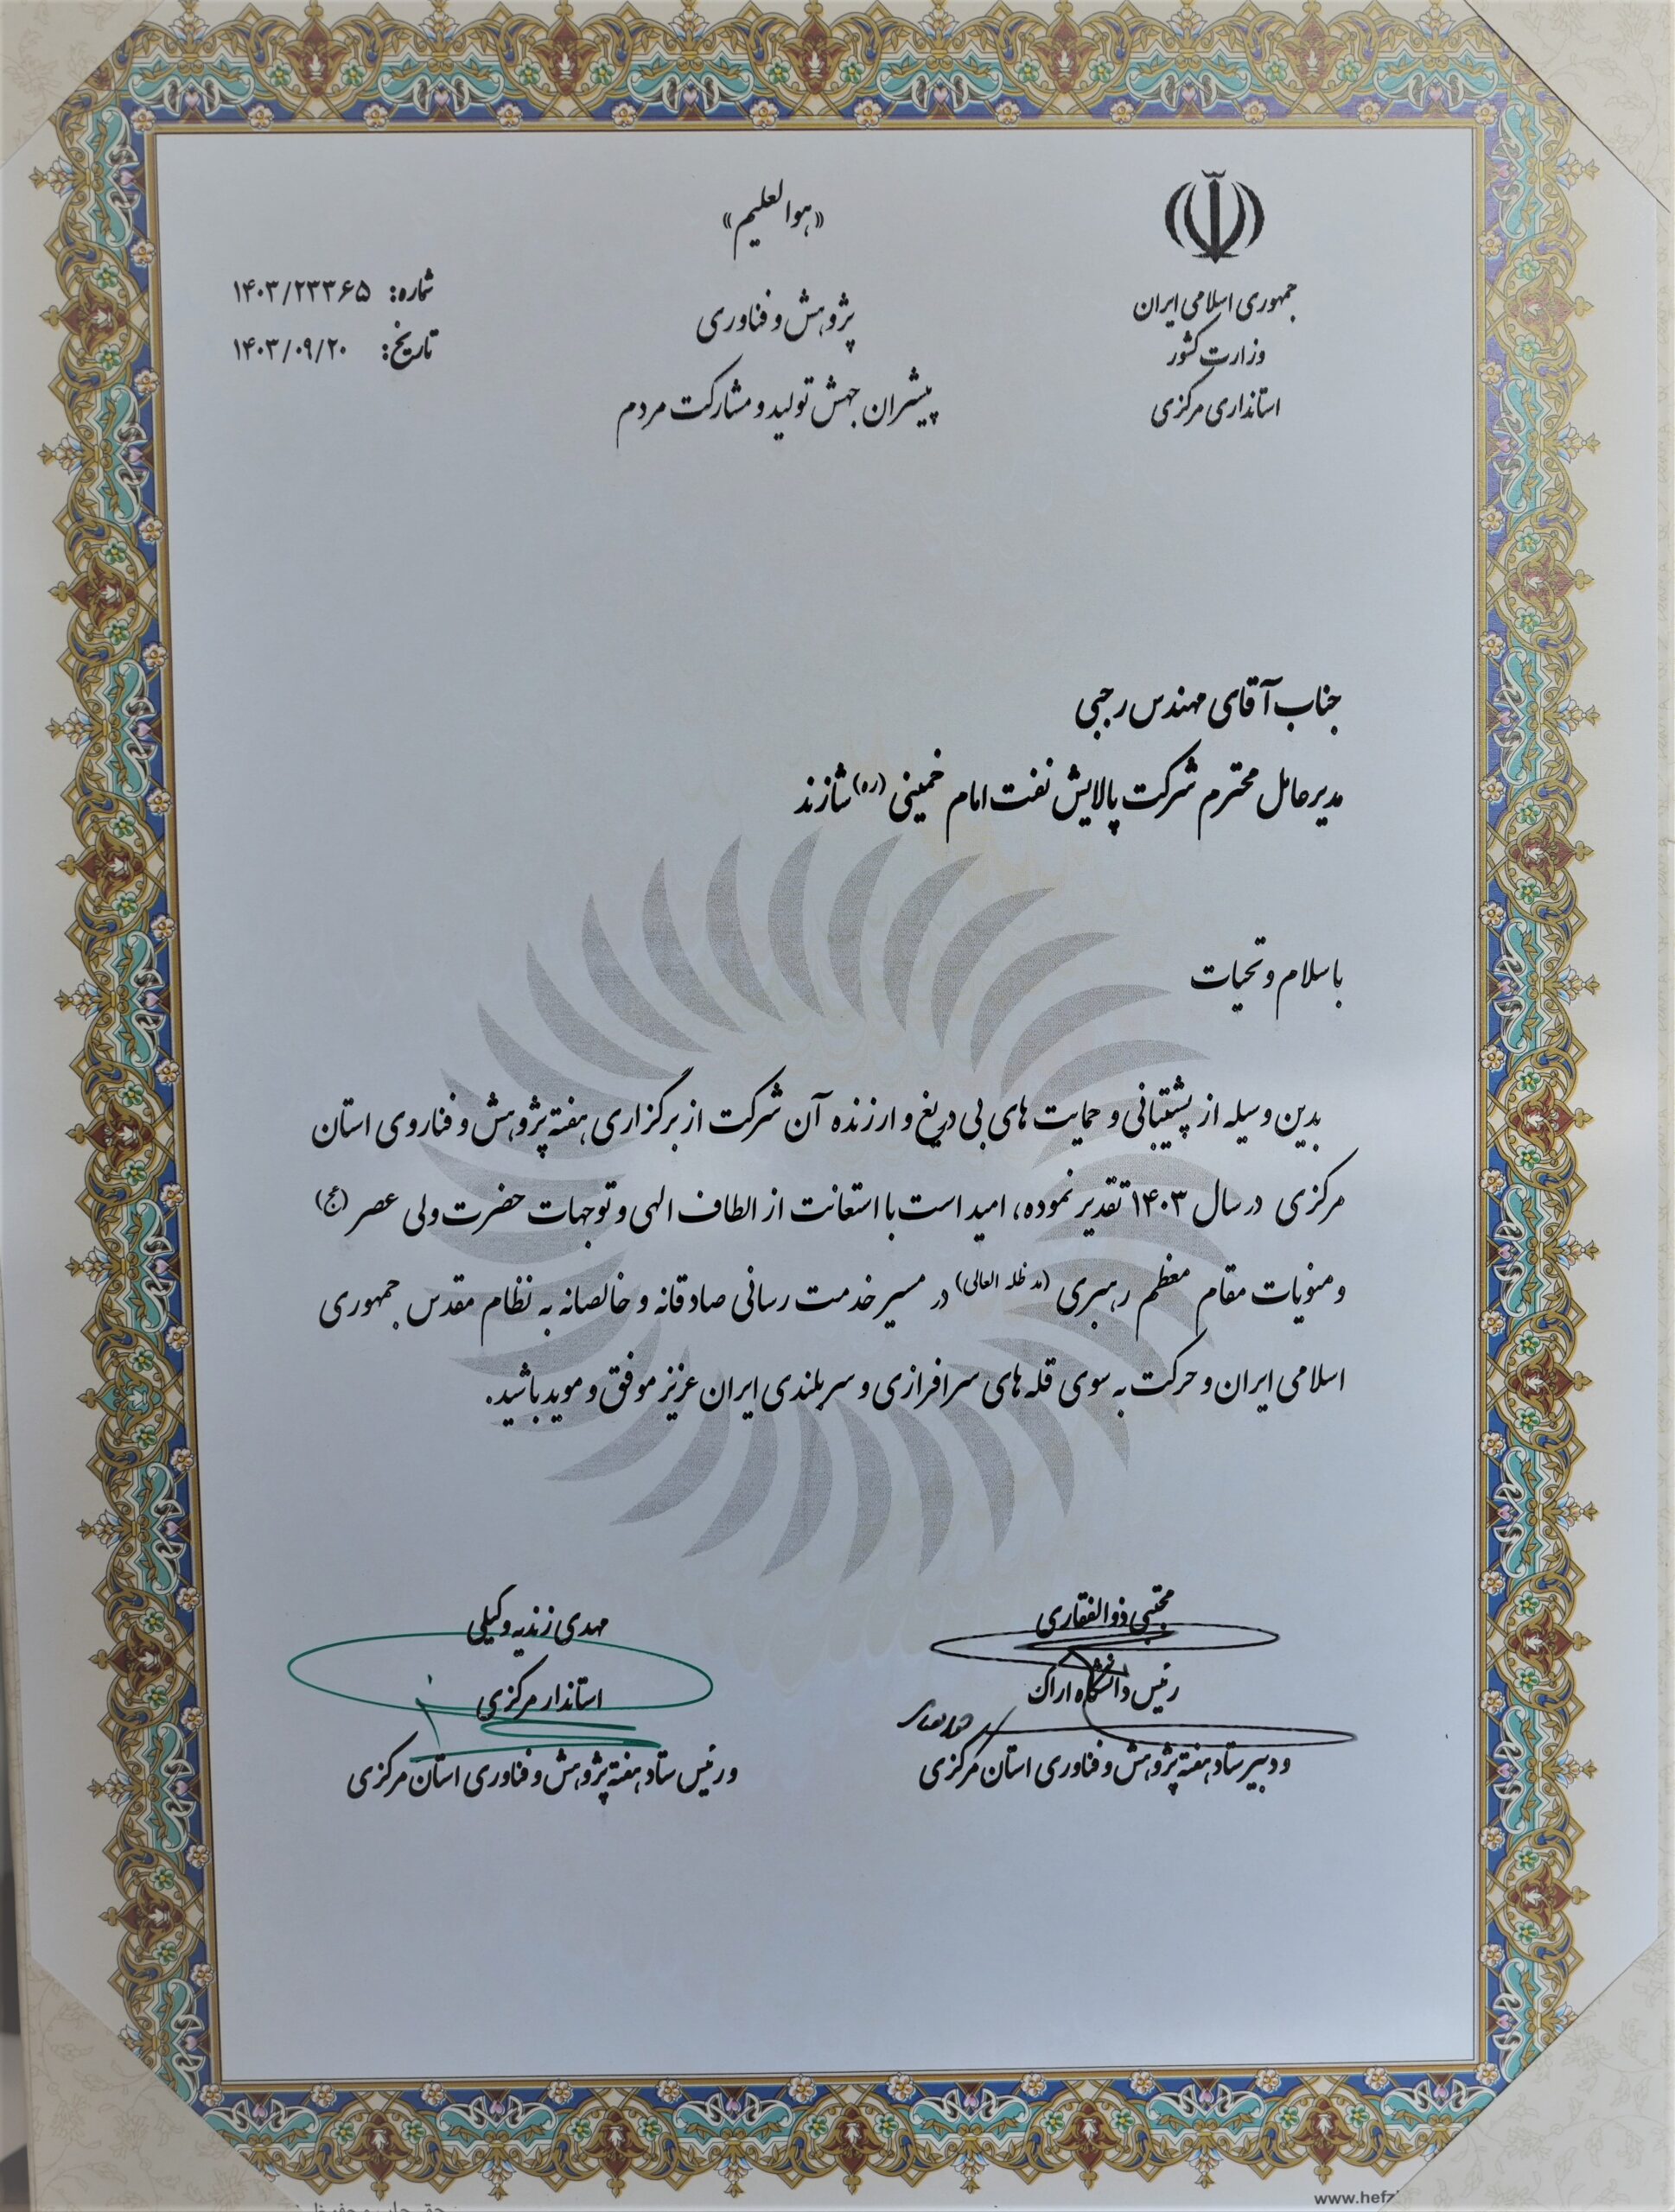 «هوالعلیم»
جمهوری اسلامی ایران
وزارت کشور
استانداری مرکزی
پژوهش و فناوری
پیشران جهش تولید و مشارکت مردم
شماره: ۱۴۰۳/۲۳۳۶۵
تاریخ: ۱۴۰۳/۰۹/۲۰
جناب آقای مهندس رجبی
مدیرعامل محترم شرکت پالایش نفت امام خمینی (ره) شازند
با سلام و تحیات
بدین وسیله از پشتیبانی و حمایت های بی دریغ و ارزنده آن شرکت از برگزاری هفته پژوهش و فناروی استان
مرکزی در سال ۱۴۰۳ تقدیر نموده، امید است با استعانت از الطاف الهی و توجهات حضرت ولی عصر (عج)
و منویات مقام معظم رهبری (مد ظله العالی) در مسیر خدمت رسانی صادقانه و خالصانه به نظام مقدس جمهوری
اسلامی ایران و حرکت به سوی قله های سرافرازی و سربلندی ایران عزیز موفق و موید باشید.
مجتبی ذوالفقاری
رئیس دانشگاه اراک
و دبیر ستاد هفته پژوهش و فناوری استان مرکزی
مهدی زندیه وکیلی
استاندار مرکزی
و رئیس ستاد هفته پژوهش و فناوری استان مرکزی
www.hefz